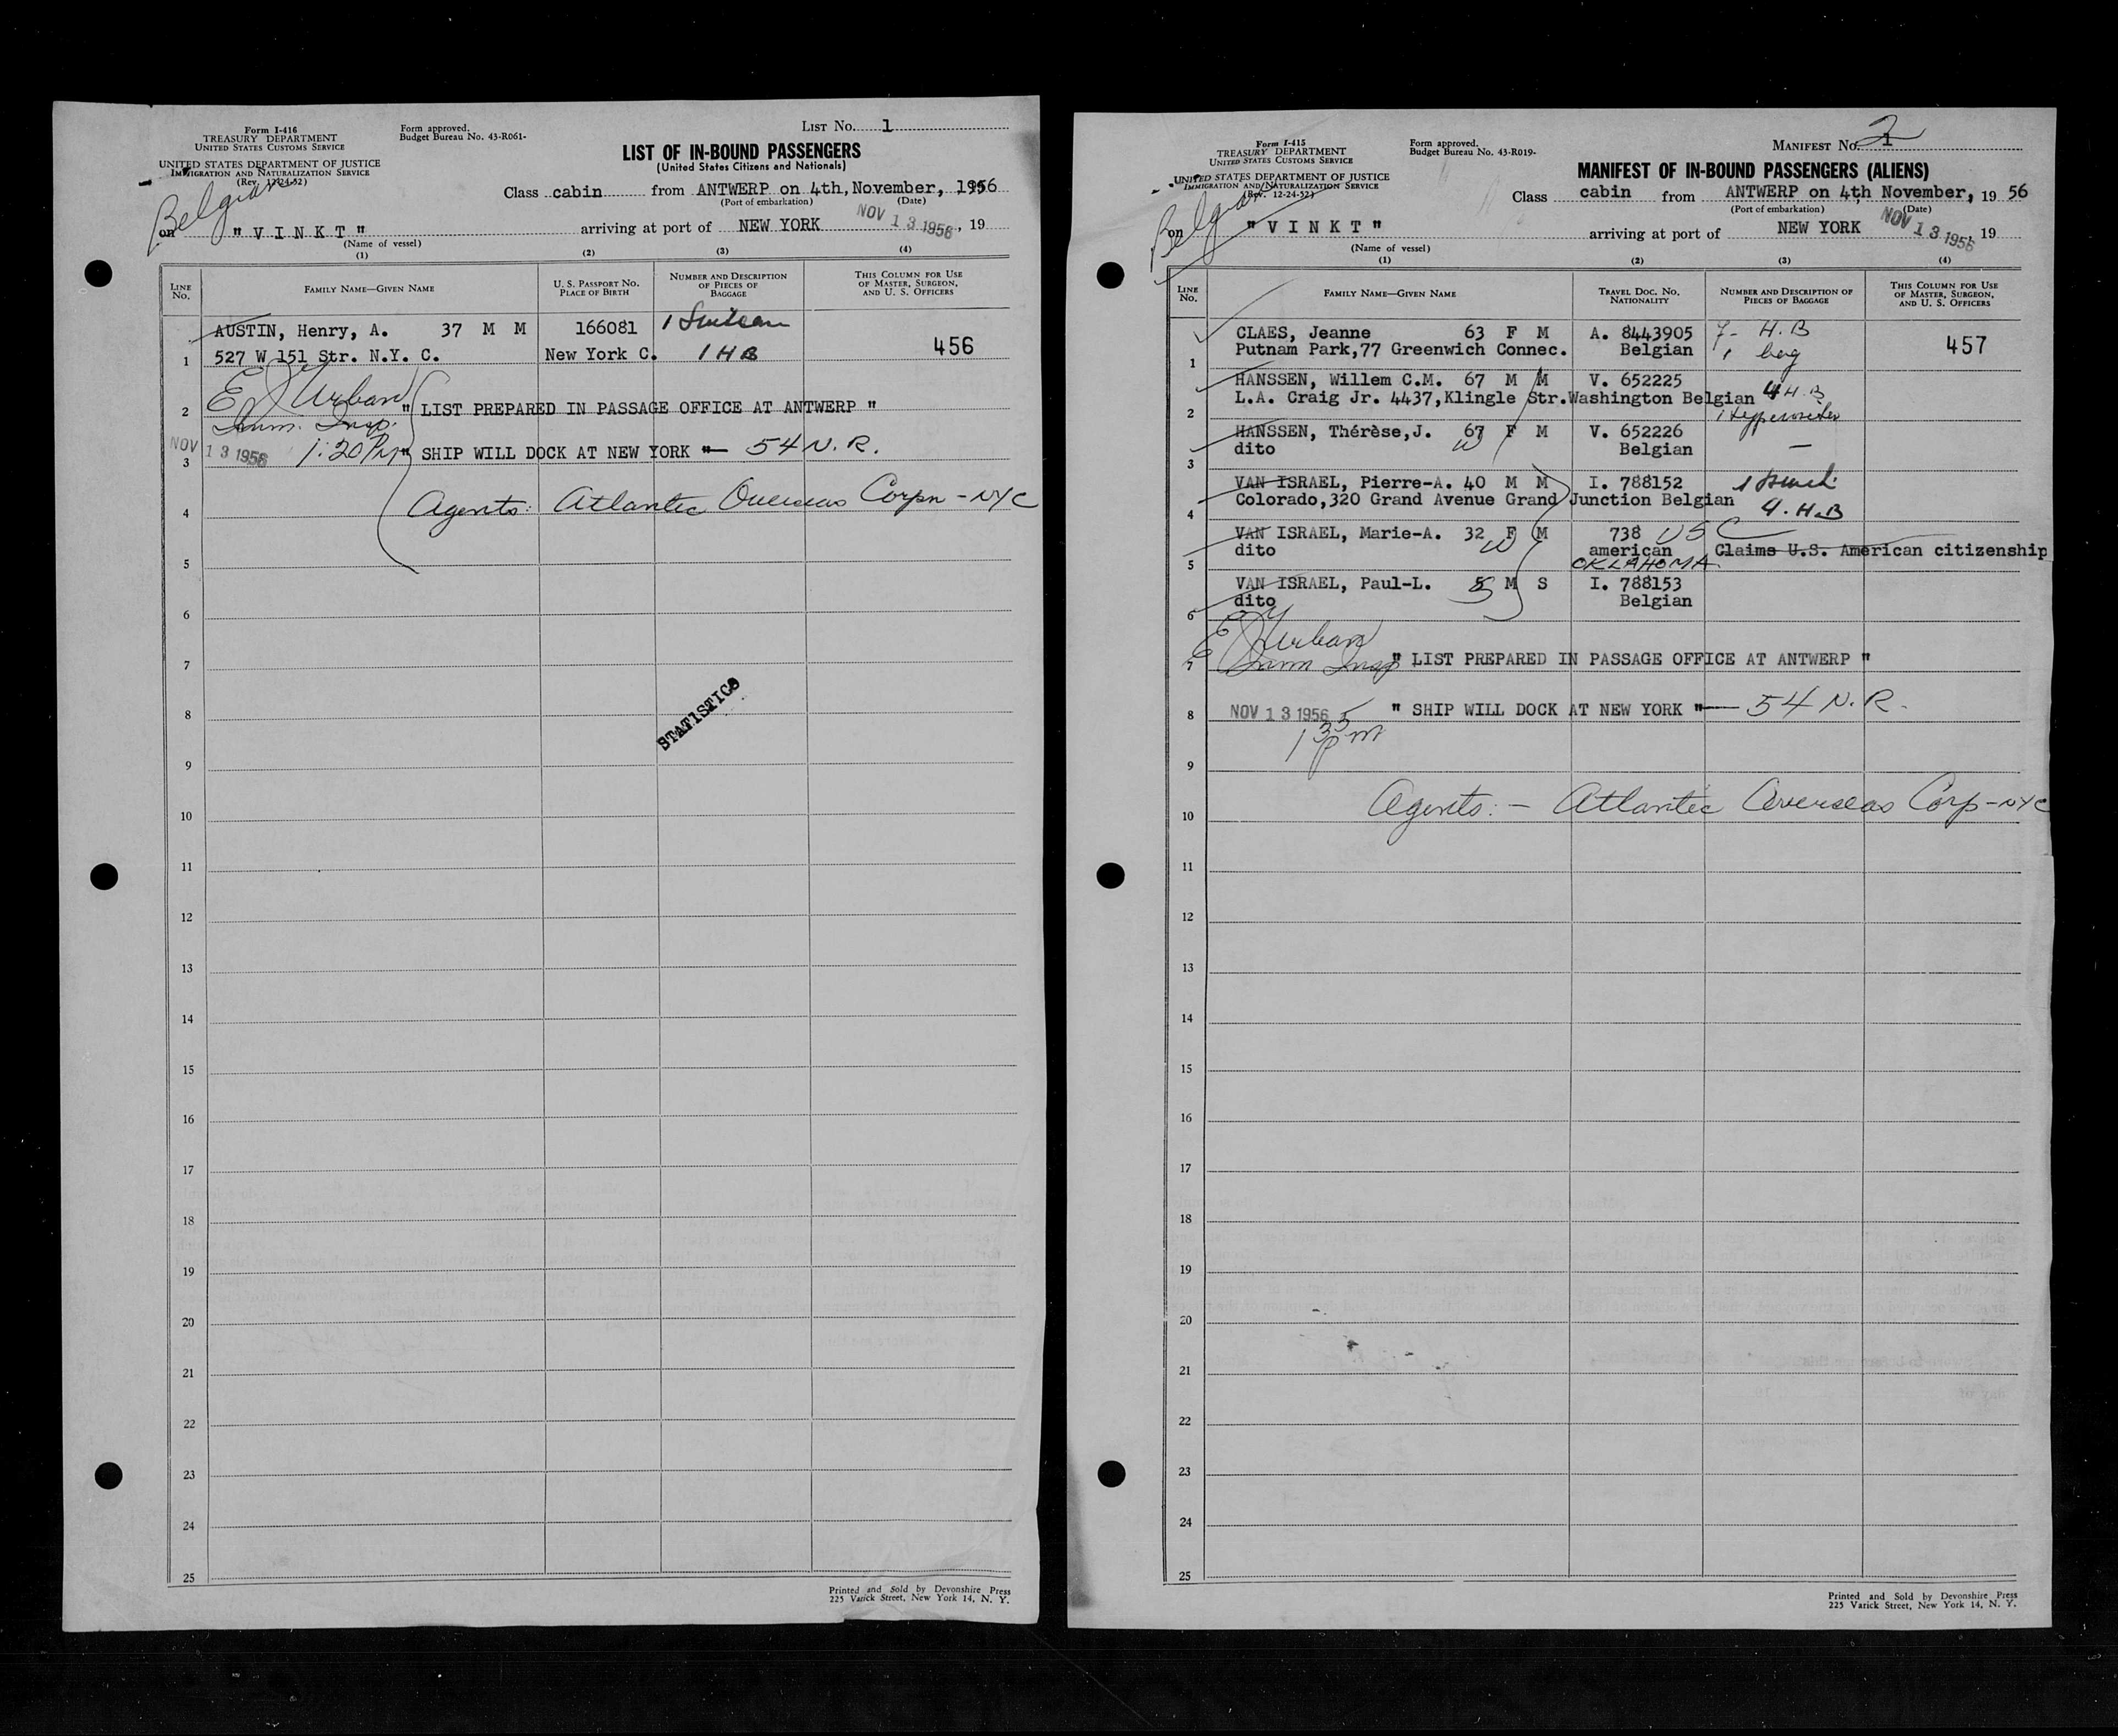 Form I-416
TREASURY DEPARTMENT
UNITED STATES CUSTOMS SERVICE
UNITED STATES DEPARTMENT OF JUSTICE
IMMIGRATION AND NATURALIZATION SERVICE
(Rev. 12-24-52)
Form approved.
Budget Bureau No. 43-R061-
LIST No. 1
LIST OF IN-BOUND PASSENGERS
(United States Citizens and Nationals)
Class cabin from ANTWERP on 4th, November, 1956
(Port of embarkation) (Date)
Belgian
on "VINKT" arriving at port of NEW YORK NOV 13 1956, 19
(Name of vessel)
(1) (2) (3) (4)
LINE No. FAMILY NAME—GIVEN NAME U. S. PASSPORT No. PLACE OF BIRTH NUMBER AND DESCRIPTION OF PIECES OF BAGGAGE THIS COLUMN FOR USE OF MASTER, SURGEON, AND U. S. OFFICERS
AUSTIN, Henry, A. 37 M M 166081 1
1 527 W 151 Str. N.Y. C. New York C. 1 H B 456
E J Urban
2 " LIST PREPARED IN PASSAGE OFFICE AT ANTWERP "
Imm. Insp.
3 NOV 13 1956 1:20 PM " SHIP WILL DOCK AT NEW YORK "— 54 N. R.
4 Agents: Atlantic Overseas Corpn - NYC
5
6
7
STATISTICS
8
9
10
11
12
13
14
15
16
17
18
19
20
21
22
23
24
25
Printed and Sold by Devonshire Press
225 Varick Street, New York 14, N. Y.
Form I-415
TREASURY DEPARTMENT
UNITED STATES CUSTOMS SERVICE
UNITED STATES DEPARTMENT OF JUSTICE
IMMIGRATION AND NATURALIZATION SERVICE
(Rev. 12-24-52)
Form approved.
Budget Bureau No. 43-R019-
MANIFEST No. 2
MANIFEST OF IN-BOUND PASSENGERS (ALIENS)
Class cabin from ANTWERP on 4th November, 19 56
(Port of embarkation) (Date)
Belgian
on "VINKT" arriving at port of NEW YORK NOV 13 1956, 19
(Name of vessel)
(1) (2) (3) (4)
LINE No. FAMILY NAME—GIVEN NAME TRAVEL DOC. No. NATIONALITY NUMBER AND DESCRIPTION OF PIECES OF BAGGAGE THIS COLUMN FOR USE OF MASTER, SURGEON, AND U. S. OFFICERS
CLAES, Jeanne 63 F M A. 8443905 7- H.B
1 Putnam Park,77 Greenwich Connec. Belgian 1 bag 457
HANSSEN, Willem C.M. 67 M M V. 652225 4 H.B
2 L.A. Craig Jr. 4437,Klingle Str.Washington Belgian 1 typewriter
HANSSEN, Thérèse,J. 67 F M V. 652226 —
3 dito W Belgian
VAN ISRAEL, Pierre-A. 40 M M I. 788152 1
4 Colorado,320 Grand Avenue Grand Junction Belgian 4. H.B
VAN ISRAEL, Marie-A. 32 F M 738 USC
5 dito W american Claims U.S. American citizenship
OKLAHOMA
VAN ISRAEL, Paul-L. 5 M S I. 788153
6 dito Belgian
E J Urban
7 Imm Insp " LIST PREPARED IN PASSAGE OFFICE AT ANTWERP "
8 NOV 13 1956 " SHIP WILL DOCK AT NEW YORK "— 54 N. R.
1 35 pm
9
10 Agents: — Atlantic Overseas Corp - NYC
11
12
13
14
15
16
17
18
19
20
21
22
23
24
25
Printed and Sold by Devonshire Press
225 Varick Street, New York 14, N. Y.